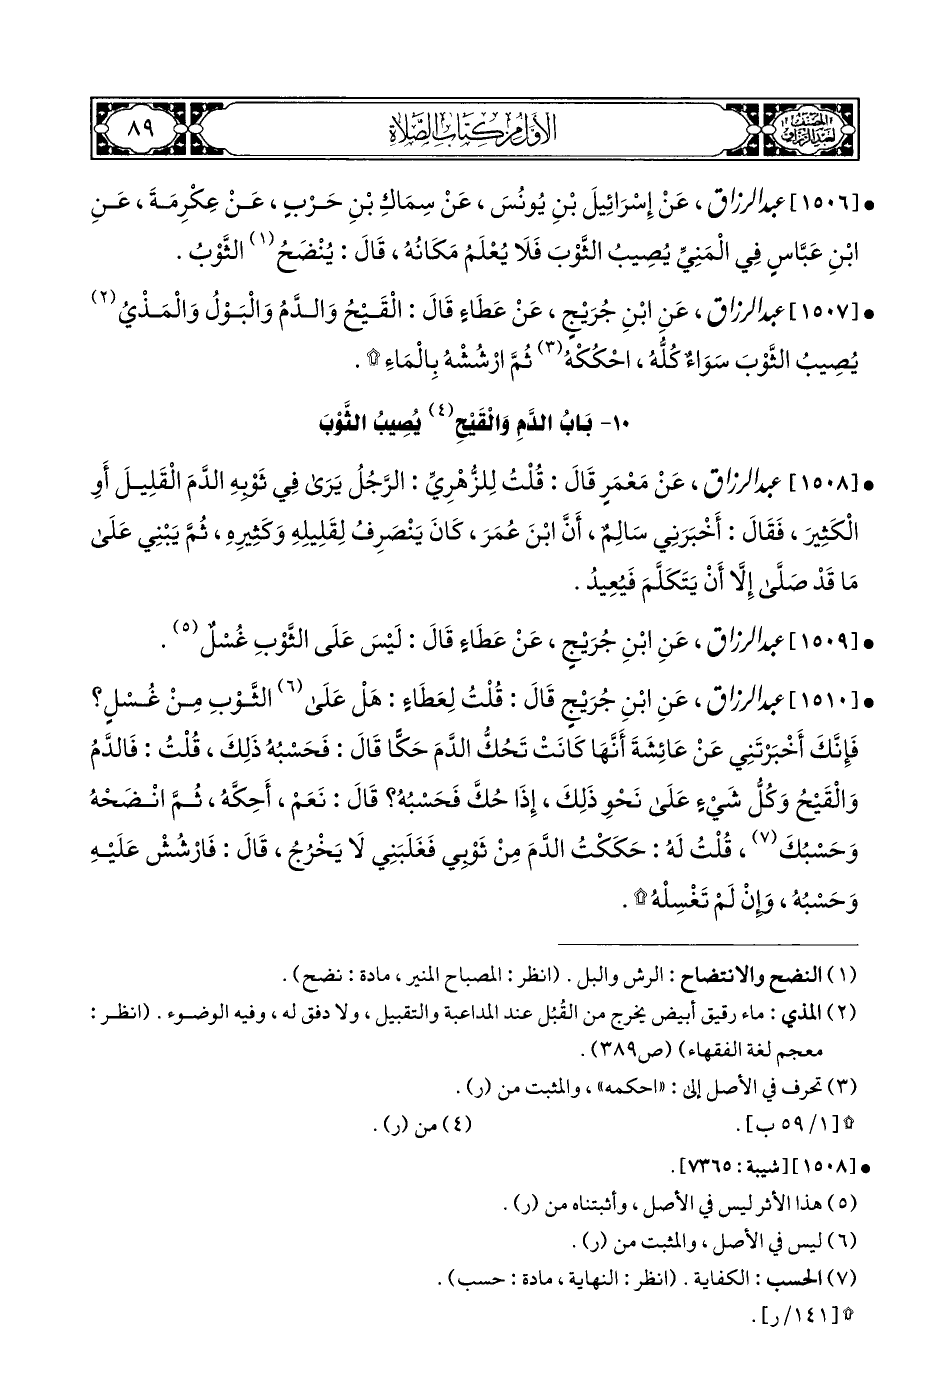 المصنف لعبد الرزاق
الأول من كتاب الصلاة
٨٩
• [١٥٠٦] عبد الرزاق ، عَنْ إِسْرَائِيلَ بْنِ يُونُسَ ، عَنْ سِمَاكِ بْنِ حَرْبٍ ، عَنْ عِكْرِمَةَ ، عَنِ
ابْنِ عَبَّاسٍ فِي الْمَنِيِّ يُصِيبُ الثَّوْبَ فَلَا يُعْلَمُ مَكَانُهُ ، قَالَ : يُنْضَحُ(١) الثَّوْبُ .
• [١٥٠٧] عبد الرزاق ، عَنِ ابْنِ جُرَيْجٍ ، عَنْ عَطَاءٍ قَالَ : الْقَيْحُ وَالدَّمُ وَالْبَوْلُ وَالْمَذْيُ(٢)
يُصِيبُ الثَّوْبَ سَوَاءٌ كُلُّهُ ، احْكُكْهُ(٣) ثُمَّ ارْشُشْهُ بِالْمَاءِ ۩ .
١٠- بَابُ الدَّمِ وَالْقَيْحِ(٤) يُصِيبُ الثَّوْبَ
• [١٥٠٨] عبد الرزاق ، عَنْ مَعْمَرٍ قَالَ : قُلْتُ لِلزُّهْرِيِّ : الرَّجُلُ يَرَىٰ فِي ثَوْبِهِ الدَّمَ الْقَلِيلَ أَوِ
الْكَثِيرَ ، فَقَالَ : أَخْبَرَنِي سَالِمٌ ، أَنَّ ابْنَ عُمَرَ ، كَانَ يَنْصَرِفُ لِقَلِيلِهِ وَكَثِيرِهِ ، ثُمَّ يَبْنِي عَلَىٰ
مَا قَدْ صَلَّىٰ إِلَّا أَنْ يَتَكَلَّمَ فَيُعِيدُ .
• [١٥٠٩] عبد الرزاق ، عَنِ ابْنِ جُرَيْجٍ ، عَنْ عَطَاءٍ قَالَ : لَيْسَ عَلَى الثَّوْبِ غُسْلٌ(٥) .
• [١٥١٠] عبد الرزاق ، عَنِ ابْنِ جُرَيْجٍ قَالَ : قُلْتُ لِعَطَاءٍ : هَلْ عَلَى(٦) الثَّوْبِ مِنْ غُسْلٍ؟
فَإِنَّكَ أَخْبَرْتَنِي عَنْ عَائِشَةَ أَنَّهَا كَانَتْ تَحُكُّ الدَّمَ حَكًّا قَالَ : فَحَسْبُهُ ذَلِكَ ، قُلْتُ : فَالدَّمُ
وَالْقَيْحُ وَكُلُّ شَيْءٍ عَلَىٰ نَحْوِ ذَلِكَ ، إِذَا حُكَّ فَحَسْبُهُ؟ قَالَ : نَعَمْ ، أَحِكَّهُ ، ثُمَّ انْضَحْهُ
وَحَسْبُكَ(٧) ، قُلْتُ لَهُ : حَكَكْتُ الدَّمَ مِنْ ثَوْبِي فَغَلَبَنِي لَا يَخْرُجُ ، قَالَ : فَارْشُشْ عَلَيْهِ
وَحَسْبُهُ ، وَإِنْ لَمْ تَغْسِلْهُ ۩ .
(١) النضح والانتضاح : الرش والبل . (انظر : المصباح المنير ، مادة : نضح) .
(٢) المذي : ماء رقيق أبيض يخرج من القُبُل عند المداعبة والتقبيل ، ولا دفق له ، وفيه الوضوء . (انظر :
معجم لغة الفقهاء) (ص٣٨٩) .
(٣) تحرف في الأصل إلى : «احكمه» ، والمثبت من (ر) .
۩ [١/ ٥٩ ب] .
(٤) من (ر) .
• [١٥٠٨] [شيبة : ٧٣٦٥] .
(٥) هذا الأثر ليس في الأصل ، وأثبتناه من (ر) .
(٦) ليس في الأصل ، والمثبت من (ر) .
(٧) الحسب : الكفاية . (انظر : النهاية ، مادة : حسب) .
۩ [١٤١/ ر] .